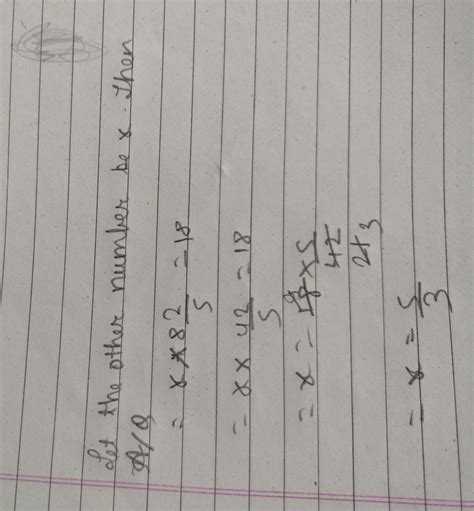 Let the other number be x. Then
A/Q
= x × 8 2/5 = 18
= x × 42/5 = 18
= x = 18 9 × 5/42 21 3
= x = 5/3